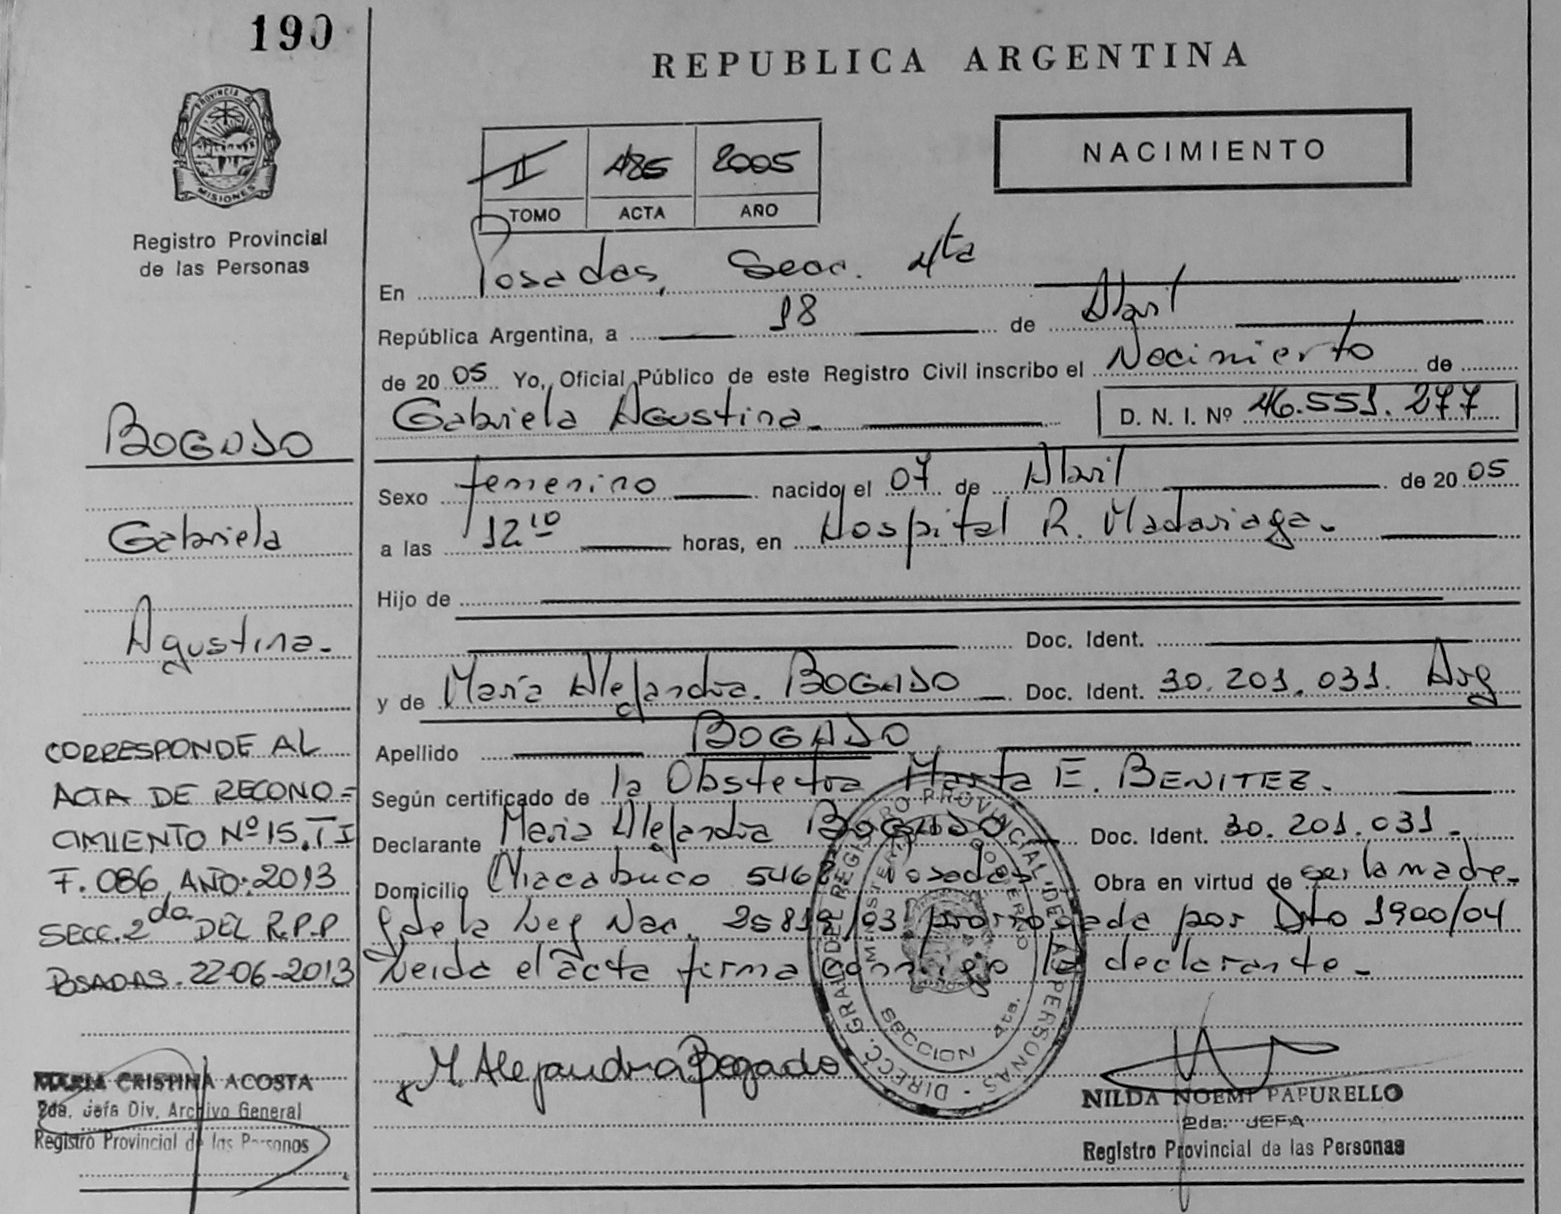 190
REPUBLICA ARGENTINA
PROVINCIA DE
MISIONES
Registro Provincial
de las Personas
II 485 2005
TOMO ACTA AÑO
NACIMIENTO
En Posadas, Secc. 4ta
República Argentina, a 18 de Abril
de 2005 Yo, Oficial Público de este Registro Civil inscribo el Nacimiento de
Gabriela Agustina. D. N. I. Nº 46.551.277
Sexo femenino nacido el 07 de Abril de 2005
a las 12 10 horas, en Hospital R. Madariaga.
Hijo de
Doc. Ident.
y de María Alejandra. BOGADO Doc. Ident. 30.201.031. Arg
Apellido BOGADO
Según certificado de la Obstetra Marta E. BENITEZ.
Declarante Maria Alejandra BOGADO Doc. Ident. 30.201.031.
Domicilio Chacabuco 5468 Posadas Obra en virtud de ser la madre.
y de la Ley Nac. 25819/03 prorrogada por Dto 1900/04
Leida el acta firma conmigo la declarante.
M. Alejandra Bogado
DIRECC. GRAL. DEL REGISTRO PROVINCIAL DE LAS PERSONAS
MINISTERIO DE GOBIERNO
SECCION 4ta.
NILDA NOEMI PAPURELLO
2da. JEFA
Registro Provincial de las Personas
BOGADO
Gabriela
Agustina.
CORRESPONDE AL
ACTA DE RECONO=
CIMIENTO Nº 15. T I
F. 086 AÑO: 2013
SECC. 2da DEL R.P.P
POSADAS. 22-06-2013
MARIA CRISTINA ACOSTA
2da. Jefa Div. Archivo General
Registro Provincial de las Personas